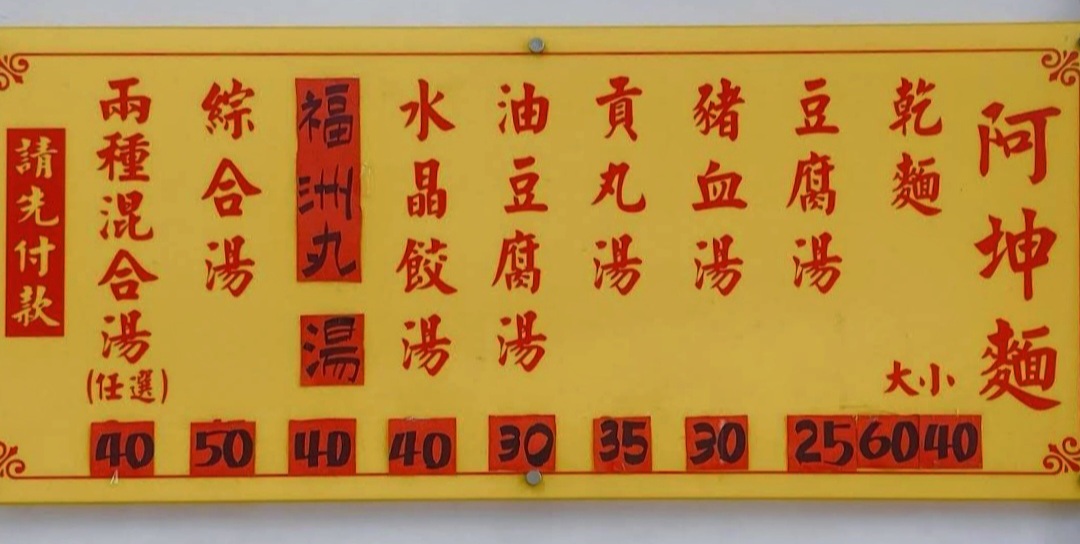 阿坤麵
乾麵 大 小 60 40
豆腐湯 25
豬血湯 30
貢丸湯 35
油豆腐湯 30
水晶餃湯 40
福洲丸湯 40
綜合湯 50
兩種混合湯(任選) 40
請先付款